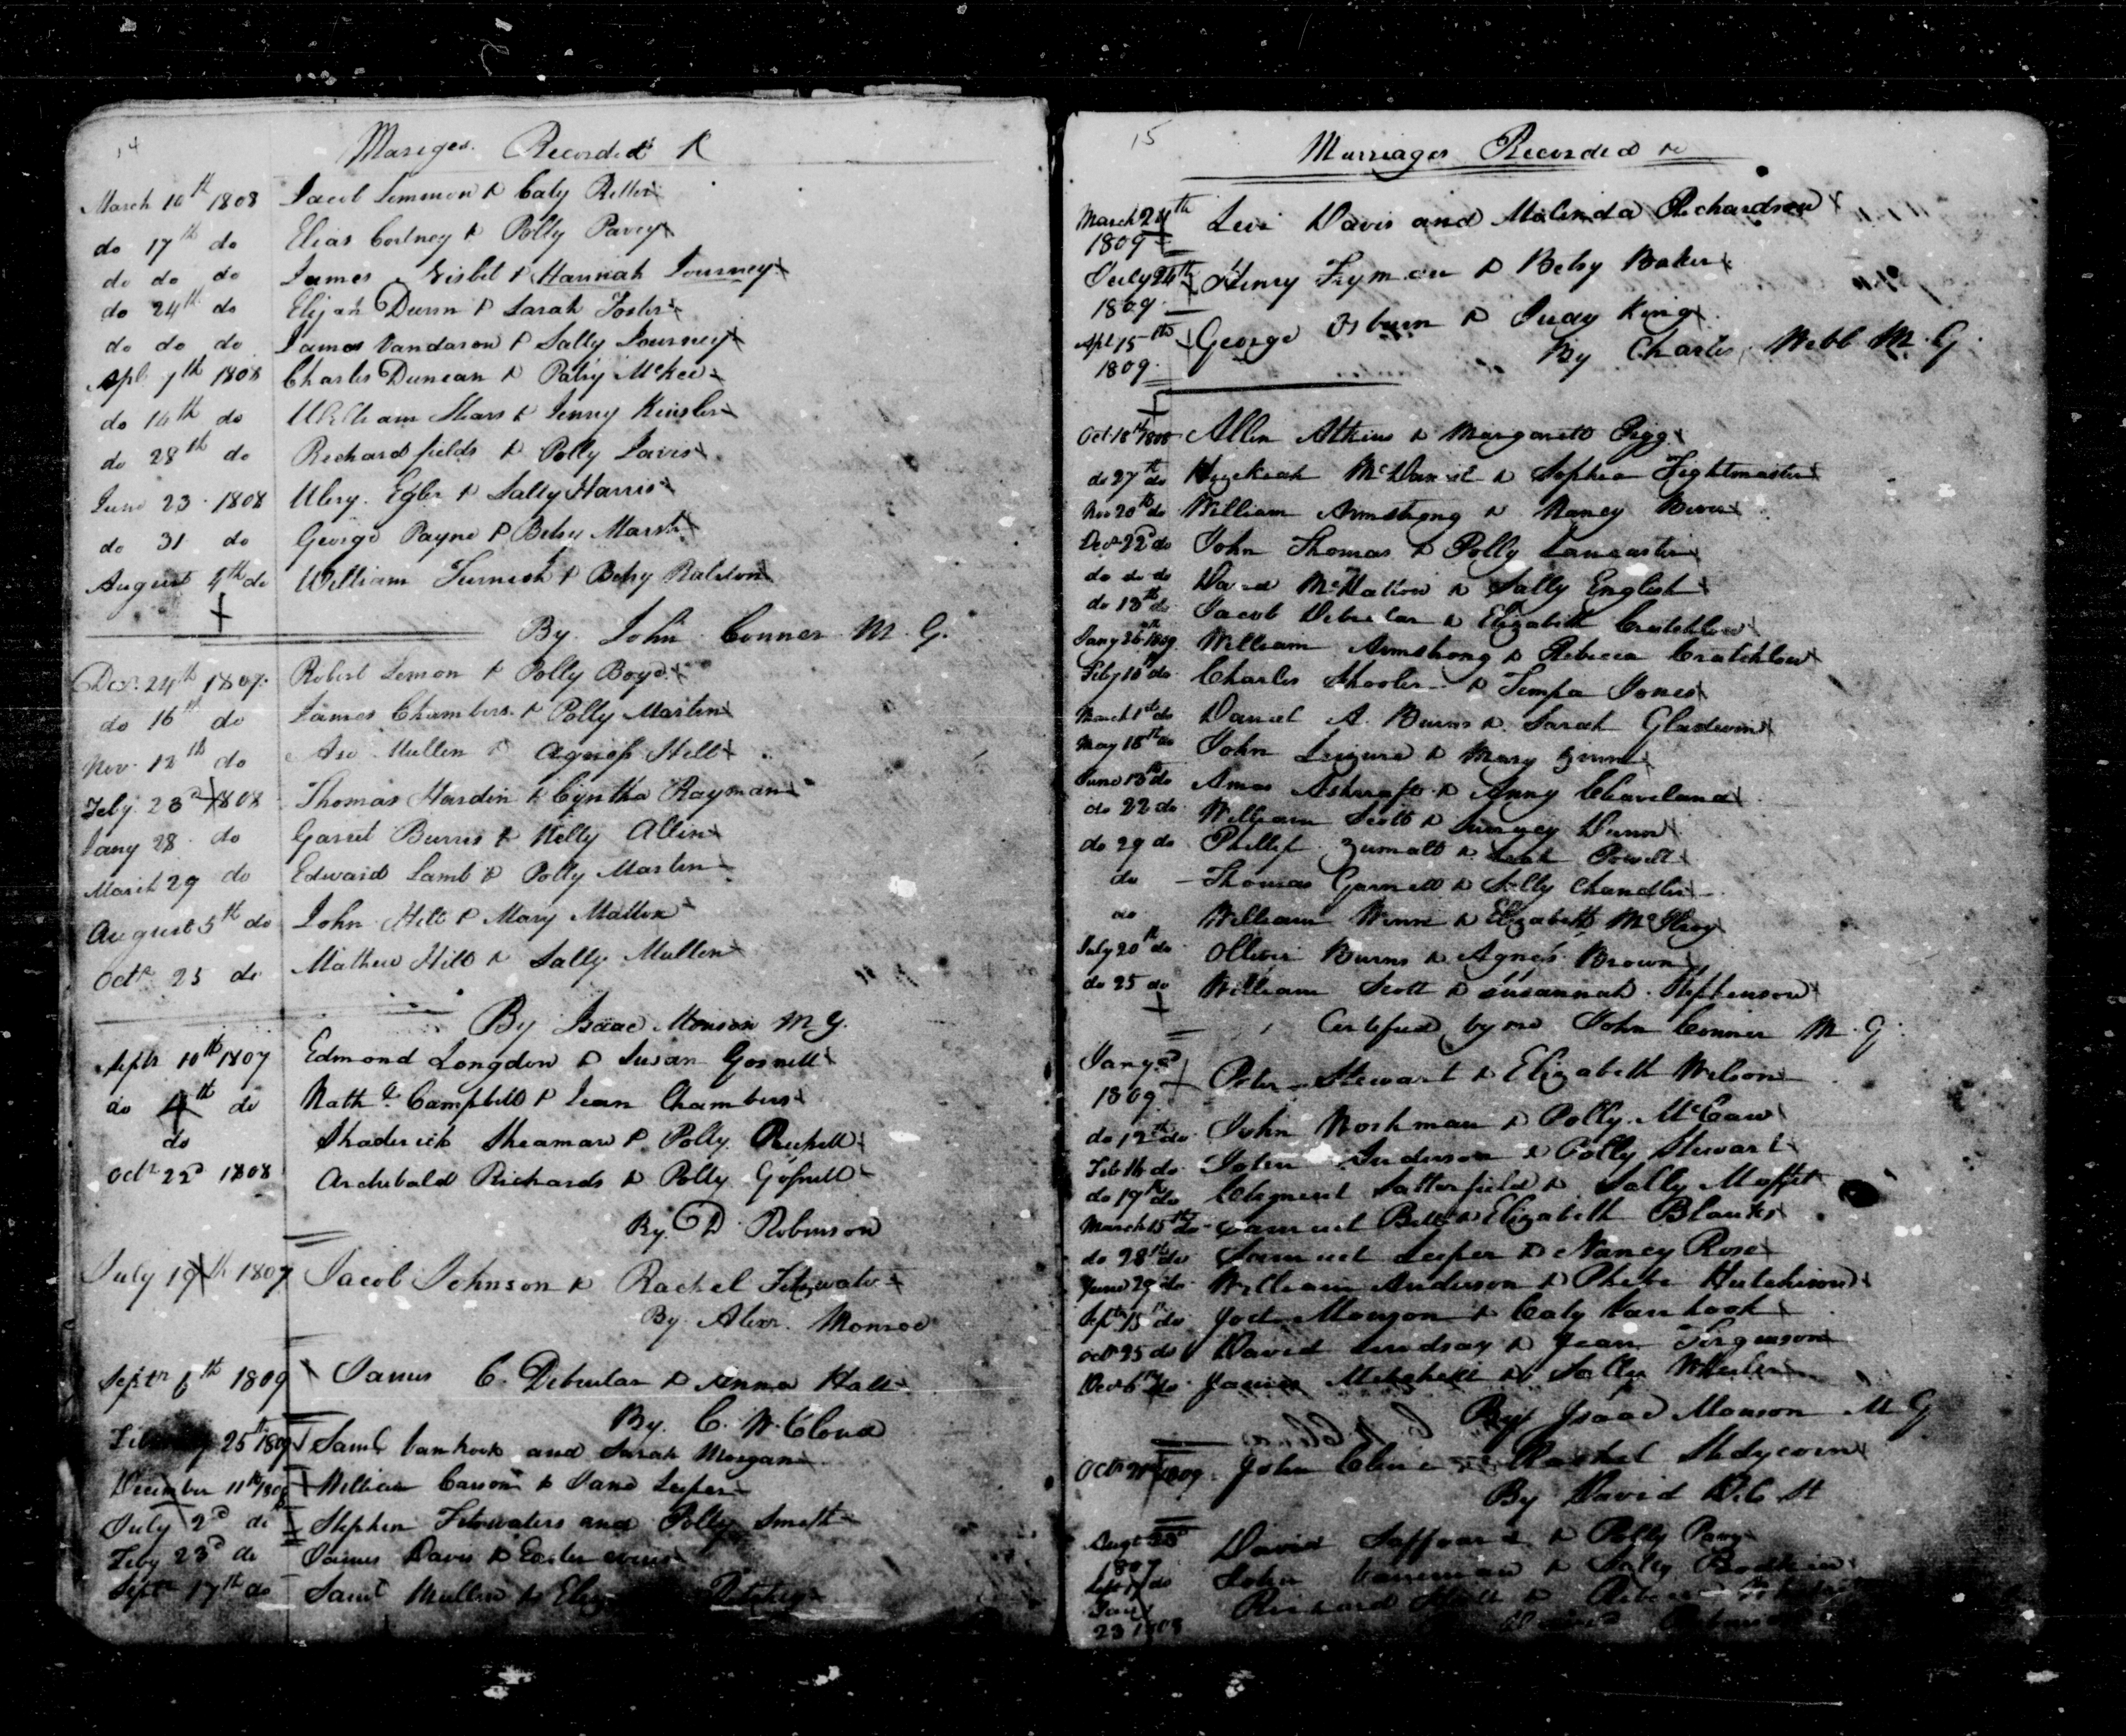 14
Mariges Recorded &
March 10th 1808 Jacob Lemmon & Caty Ritter
do 17th do Elias Cortney & Polly Pavey
do do do James Nisbet & Hannah Journey
do 24th do Elijah Dunn & Sarah Foster
do do do James Vandaron & Sally Journey
Apl 7th 1808 Charles Duncan & Patsy McKee
do 14th do William Shars & Jenny Kinsler
do 28th do Richard fields & Polly Lairs
June 23 1808 Ulery Egler & Sally Harris
do 31 do George Payne & Betsy Marsh
August 4th do William Furnish & Betsy Ralston
By John Conner M. G.
Decr 24th 1807 Robert Lemon & Polly Boyd
do 16th do James Chambers & Polly Martin
Nov 12th do Mullen & Agness Hill
Feby 23d 1808 Thomas Hardin & Cyntha Rayman
Jany 28 do Garret Burris & Nelly Allin
March 29 do Edward Lamb & Polly Martin
August 5th do John Hill & Mary Mallon
Octr 25 do Mathew Hill & Sally Mullen
By Isaac Monson M G.
Septr 10th 1807 Edmond Longdon & Susan Gosnell
do 4th do Nathl Campbell & Jean Chambers
do Shaderick Sheaman & Polly
Octr 22d 1808 Archibald Richards & Polly Gosnell
By D Robinson
July 19th 1807 Jacob Johnson & Rachel Fitzwater
By Alexr. Monroe
Septr 6th 1809 James C. Debrular & Anna Hall
By C. W. Cloud
25th 1809 Saml Vanhook and Sarah Morgan
December 11th William Carson & Jane Leeper
July 2d do Stephen Fitzwaters and Polly Smith
Feby 23d do James Davis & Easter
Septr 17th do Saml Mullen &
15
Marriages Recorded &
March 24th Levi Davis and Malinda Richardson
1809
July 24th Henry Fryman & Betsy Baker
1809
Apl 15th George Osburn & Juday King
1809 By Charles Webb M. G.
Oct 18th 1808 Allen Atkins & Margarett Pigg
do 27th do Hezekiah McDaniel & Sophia Fightmaster
Nov 20th do William Armstrong & Nancy
Decr 22d do John Thomas & Polly Lancaster
do do do David & Sally English
do 13th do Jacob Debrular & Elizabeth Crutchlow
Jany 26th 1809 William Armstrong & Rebecca Cratchlow
Feby 10th do Charles Shooler & Tempa Jones
March 1st do Daniel A. Burns & Sarah Gladwin
May 18th do John Leizure & Mary Zinn
June 13th do Amos Ashcraft & Anny Cleaveland
do 22 do William Scott & Dunn
do 29 do Phillip Zumalt & Leah Powell
do Thomas Garnett & Sally Chandler
do William Winn & Elizabeth McIlroy
July 20th do Olliver Burns & Agnes Brown
do 25 do William Scott & Susannah Stephenson
Certified by me John Conner M. G.
Jany 2d Peter Stewart & Elizabeth Wilson
1809
do 12th do John Workman & Polly McCaw
Feb 16 do John Anderson & Polly Stewart
do 19th do Clement Satterfield & Sally Moffit
March 15th do Samuel Bell & Elizabeth Blanks
do 28th do Samuel Leeper & Nancy Rose
June 29 do William Anderson & Phebe Hutchison
Septr 15th do Joel Monson & Caty Vanhook
Octr 25 do David Lindsay & Jean Ferguson
Decr 6th do James Mitchell & Sally Wheeler
By Isaac Monson M G
Octr 1809 John Cline & Rachel
By David
Augt David Saffoard & Polly
1807
Sept 17 do John & Sally Bodkin
Jany Richard Hall &
23 1808